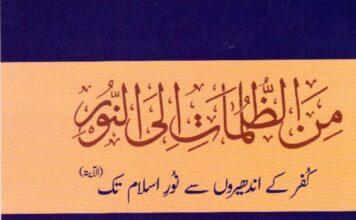 مِنَ الظُّلُمَاتِ اِلَی النُّوْرِ
کُفر کے اندھیروں سے نُورِ اسلام تک (الآیۃ)